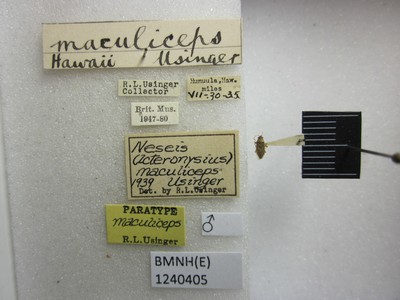 maculiceps
Hawaii Usinger
R.L.Usinger
Collector
Humuula, Haw.
miles
VII-30-35
Brit. Mus.
1947-80
Neseis
(Icteronysius)
maculiceps
1939 Usinger
Det. by R.L.Usinger
PARATYPE
maculiceps
R.L.Usinger
♂
BMNH(E)
1240405